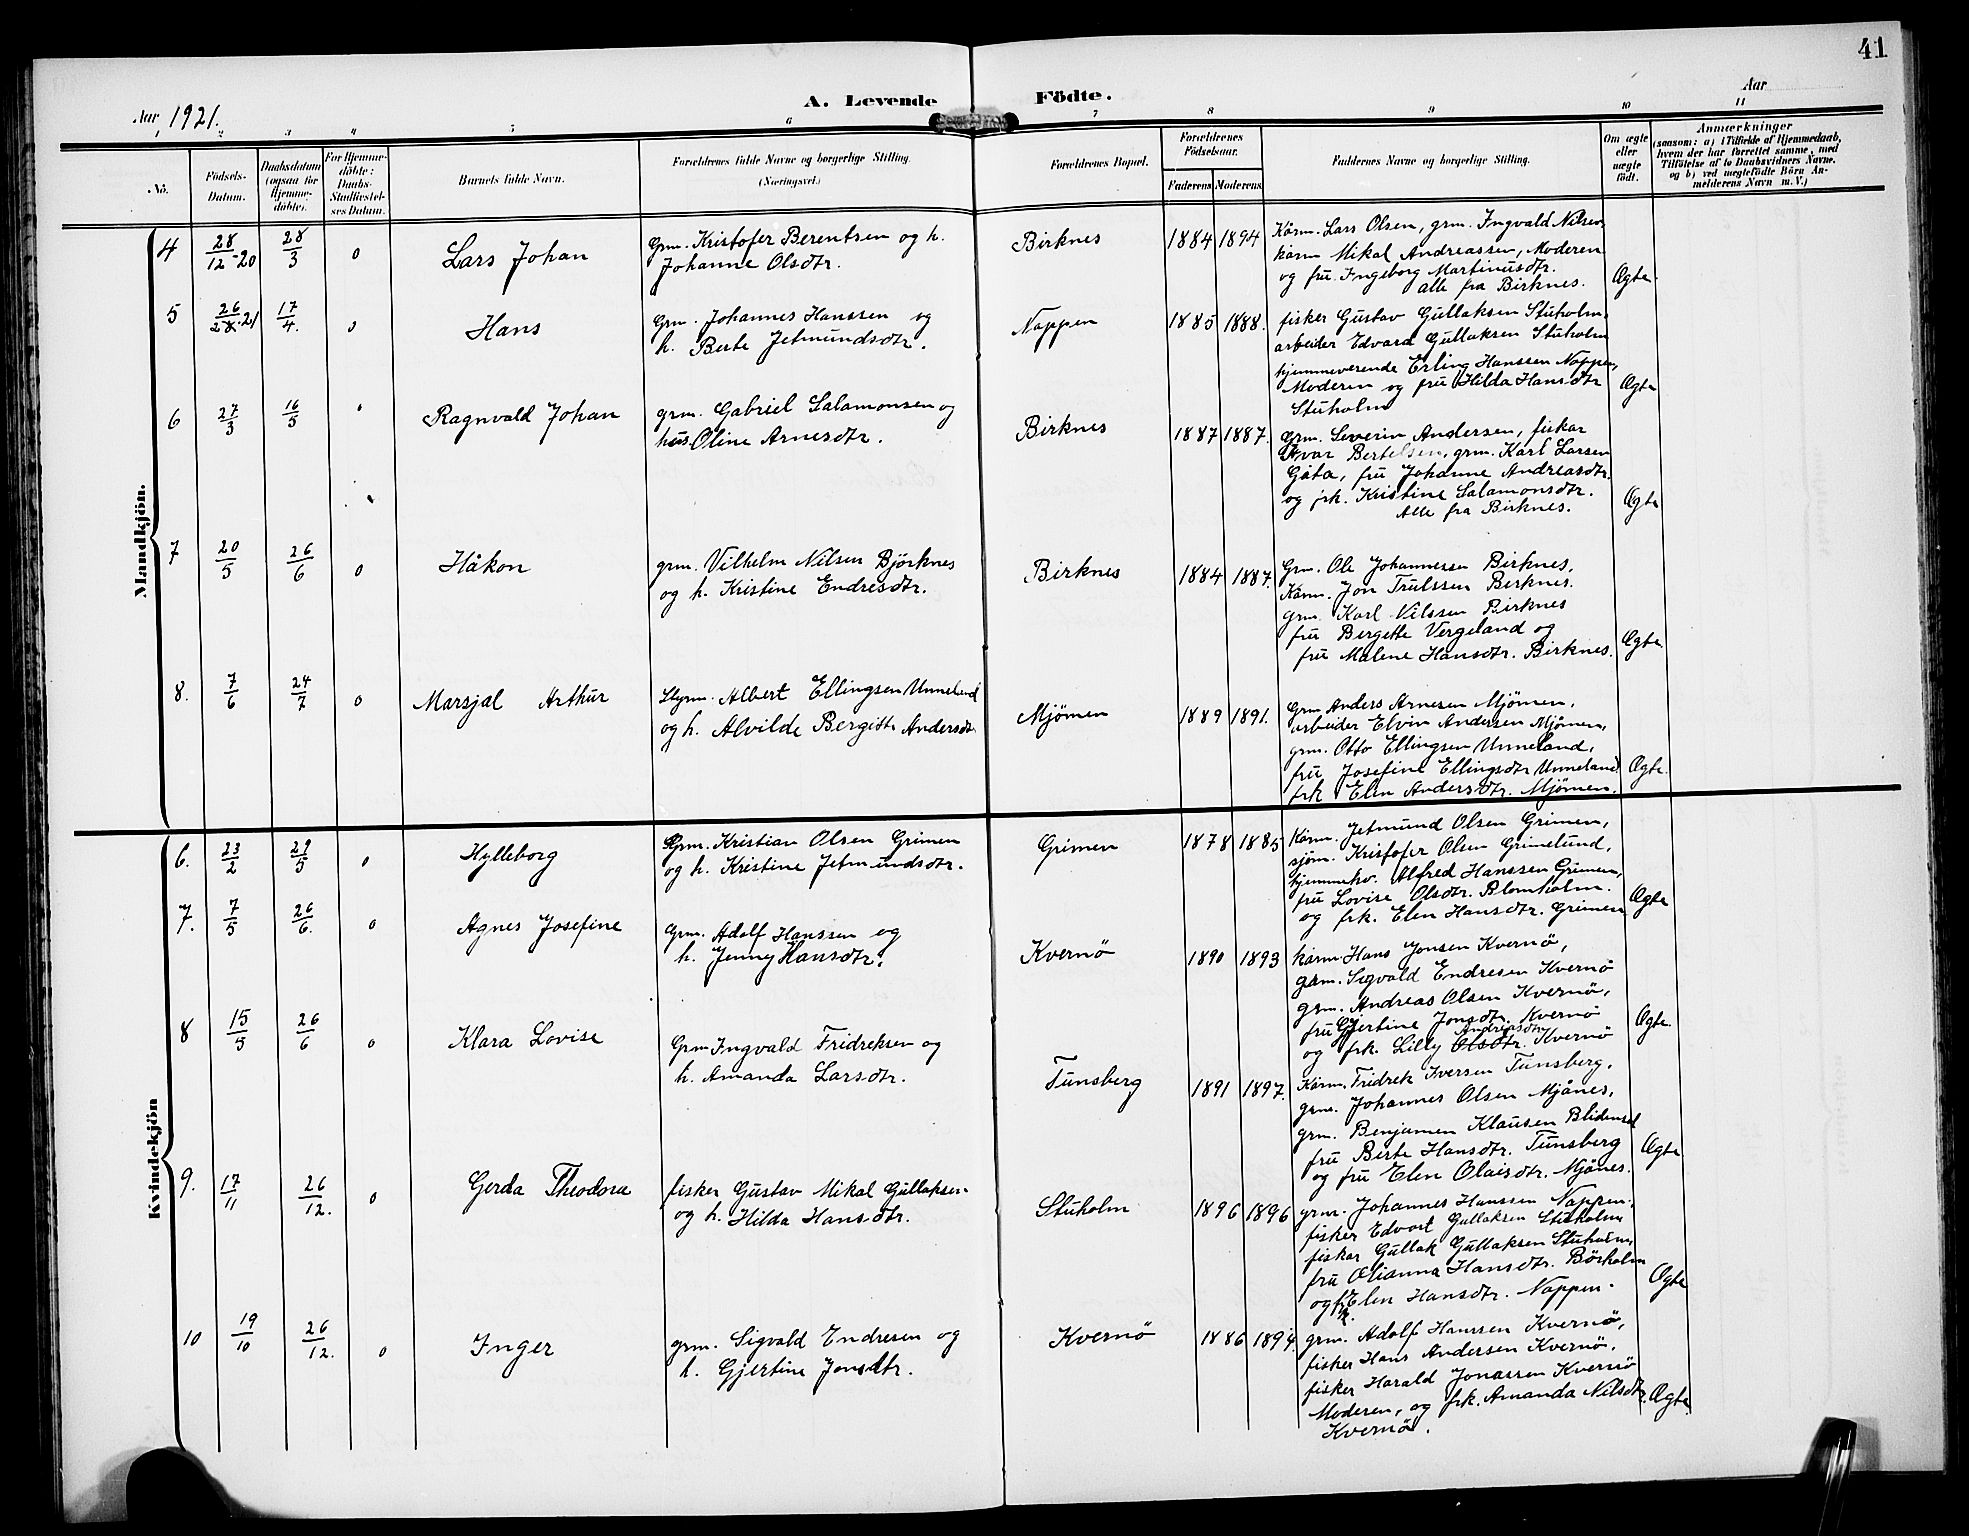 41
Aar 1921.
A. Levende Födte.
Aar
1 2 3 4 5 6 7 8 9 10 11
No.
Födsels-
Datum.
Daabsdatum
(ogsaa for
Hjemme-
döbte).
For Hjemme-
döbte:
Daabs-
Stadfæstel-
ses Datum.
Barnets fulde Navn.
Forældrenes fulde Navne og borgerlige Stilling.
(Næringsvei.)
Forældrenes Bopæl.
Forældrenes
Födselsaar.
Faderens
Moderens
Faddernes Navne og borgerlige Stilling.
Om ægte
eller
uægte
födt.
Anmærkninger
(saasom: a) i Tilfælde af Hjemmedaab,
hvem der har forrettet samme, med
Tilföielse af to Daabsvidners Navne,
og b) ved uægtefödte Börn An-
melderens Navn m. V.)
Mandkjön.
4 28/12-20 28/3 0 Lars Johan
Grm. Kristofer Berentsen og h.
Johanne Olsdtr.
Birknes 1884 1894
Kårm. Lars Olsen, grm. Ingvald Nilsen,
kårm Mikal Andreassen, Moderen
og fru Ingeborg Martinusdtr.
alle fra Birknes.
Ægte
5 26/2-21 17/4. 0 Hans
Grm. Johannes Hanssen og
h. Berte Jetmundsdtr.
Nappen 1885 1888.
fisker Gustav Gullaksen Stuholm,
arbeider Edvard Gullaksen Stuholm
hjemmeværende Erling Hanssen Nappen,
Moderen og fru Hilda Hansdtr
Stuholm
Ægte
6 27/3 16/5 0 Ragnvald Johan
grm. Gabriel Salamonsen og
hus. Oline Arnesdtr.
Birknes 1887 1887.
Grm. Severin Andersen, fisker
Ivar Bertelsen, grm. Karl Larsen
Gåta, fru Johanne Andreasdtr.
og frk. Kristine Salamonsdtr.
Alle fra Birknes.
Ægte
7 20/5 26/6 0 Håkon
grm. Vilhelm Nilsen Björknes
og h. Kristine Endresdtr.
Birknes 1884 1887.
Grm. Ole Johannessen Birknes,
Kårm. Jon Trulssen Birknes.
grm. Karl Nilssen Birknes
fru Bergitte Vergeland og
fru Malene Hansdtr. Birknes.
Ægte
8. 7/6 24/7 0 Marsjal Arthur
Styrm. Albert Ellingsen Unneland
og h. Alvilde Bergitte Andersdtr.
Mjömen 1889 1891.
Grm Anders Arnesen Mjömen,
arbeider Elvin Andersen Mjömen,
grm. Otto Ellingsen Unneland,
fru Josefine Ellingsdtr Unneland
frk Elen Andersdtr. Mjömen.
Ægte.
Kvindekjön
6. 23/2 29/5 0 Hylleborg
Grm. Kristian Olsen Grimen
og h. Kristine Jetmundsdtr.
Grimen 1878 1885
Kårm. Jetmund Olsen Grimen,
sjöm. Kristofer Olsen Grimelund,
hjemmehv. Alfred Hanssen Grimen,
fru Lovise Olsdtr. Blomholm.
og frk. Elen Hansdtr. Grimen
Ægte
7. 7/5 26/6. 0 Agnes Josefine
Grm. Adolf Hanssen og
h. Jenny Hansdtr.
Kvernö 1890 1893
kårm. Hans Jonsen Kvernö,
grm. Sigvald Endresen Kvernö
grm. Andreas Olsen Kvernö,
fru Gjertine Jonsdtr. Kvernö
Andreasdtr
og frk. Lilly Olsdtr. Kvernö
Ægte.
8 15/5 26/6 0 Klara Lovise
Grm Ingvald Fridreksen og
h. Amanda Larsdtr.
Tunsberg 1891 1897.
Kårm. Fridrek Iversen Tunsberg,
grm. Johannes Olsen Mjånes,
grm. Benjamen Klausen Blidensol
fru Berte Hansdtr. Tunsberg
og fru Elen Olaisdtr. Mjånes.
Ægte
9. 17/11 26/12. 0 Gerda Theodora
fisker Gustav Mikal Gullaksen
og h. Hilda Hansdtr.
Stuholm 1896 1896
grm. Johannes Hanssen Nappen,
fisker Edvart Gullaksen Stuholm
fisker Gullak Gullaksen Stuholm,
fru Olianna Hansdtr. Börholm
og frk Elen Hansdtr. Nappen.
Ægte
10 19/10 26/12. 0 Inger
grm. Sigvald Endresen og
h. Gjertine Jonsdtr.
Kvernö 1886 1894
grm. Adolf Hanssen Kvernö,
fisker Hans Andersen Kvernö,
fisker Harald Jonassen Kvernö
Moderen, og frk. Amanda Nilsdtr.
Kvernö.
Ægte